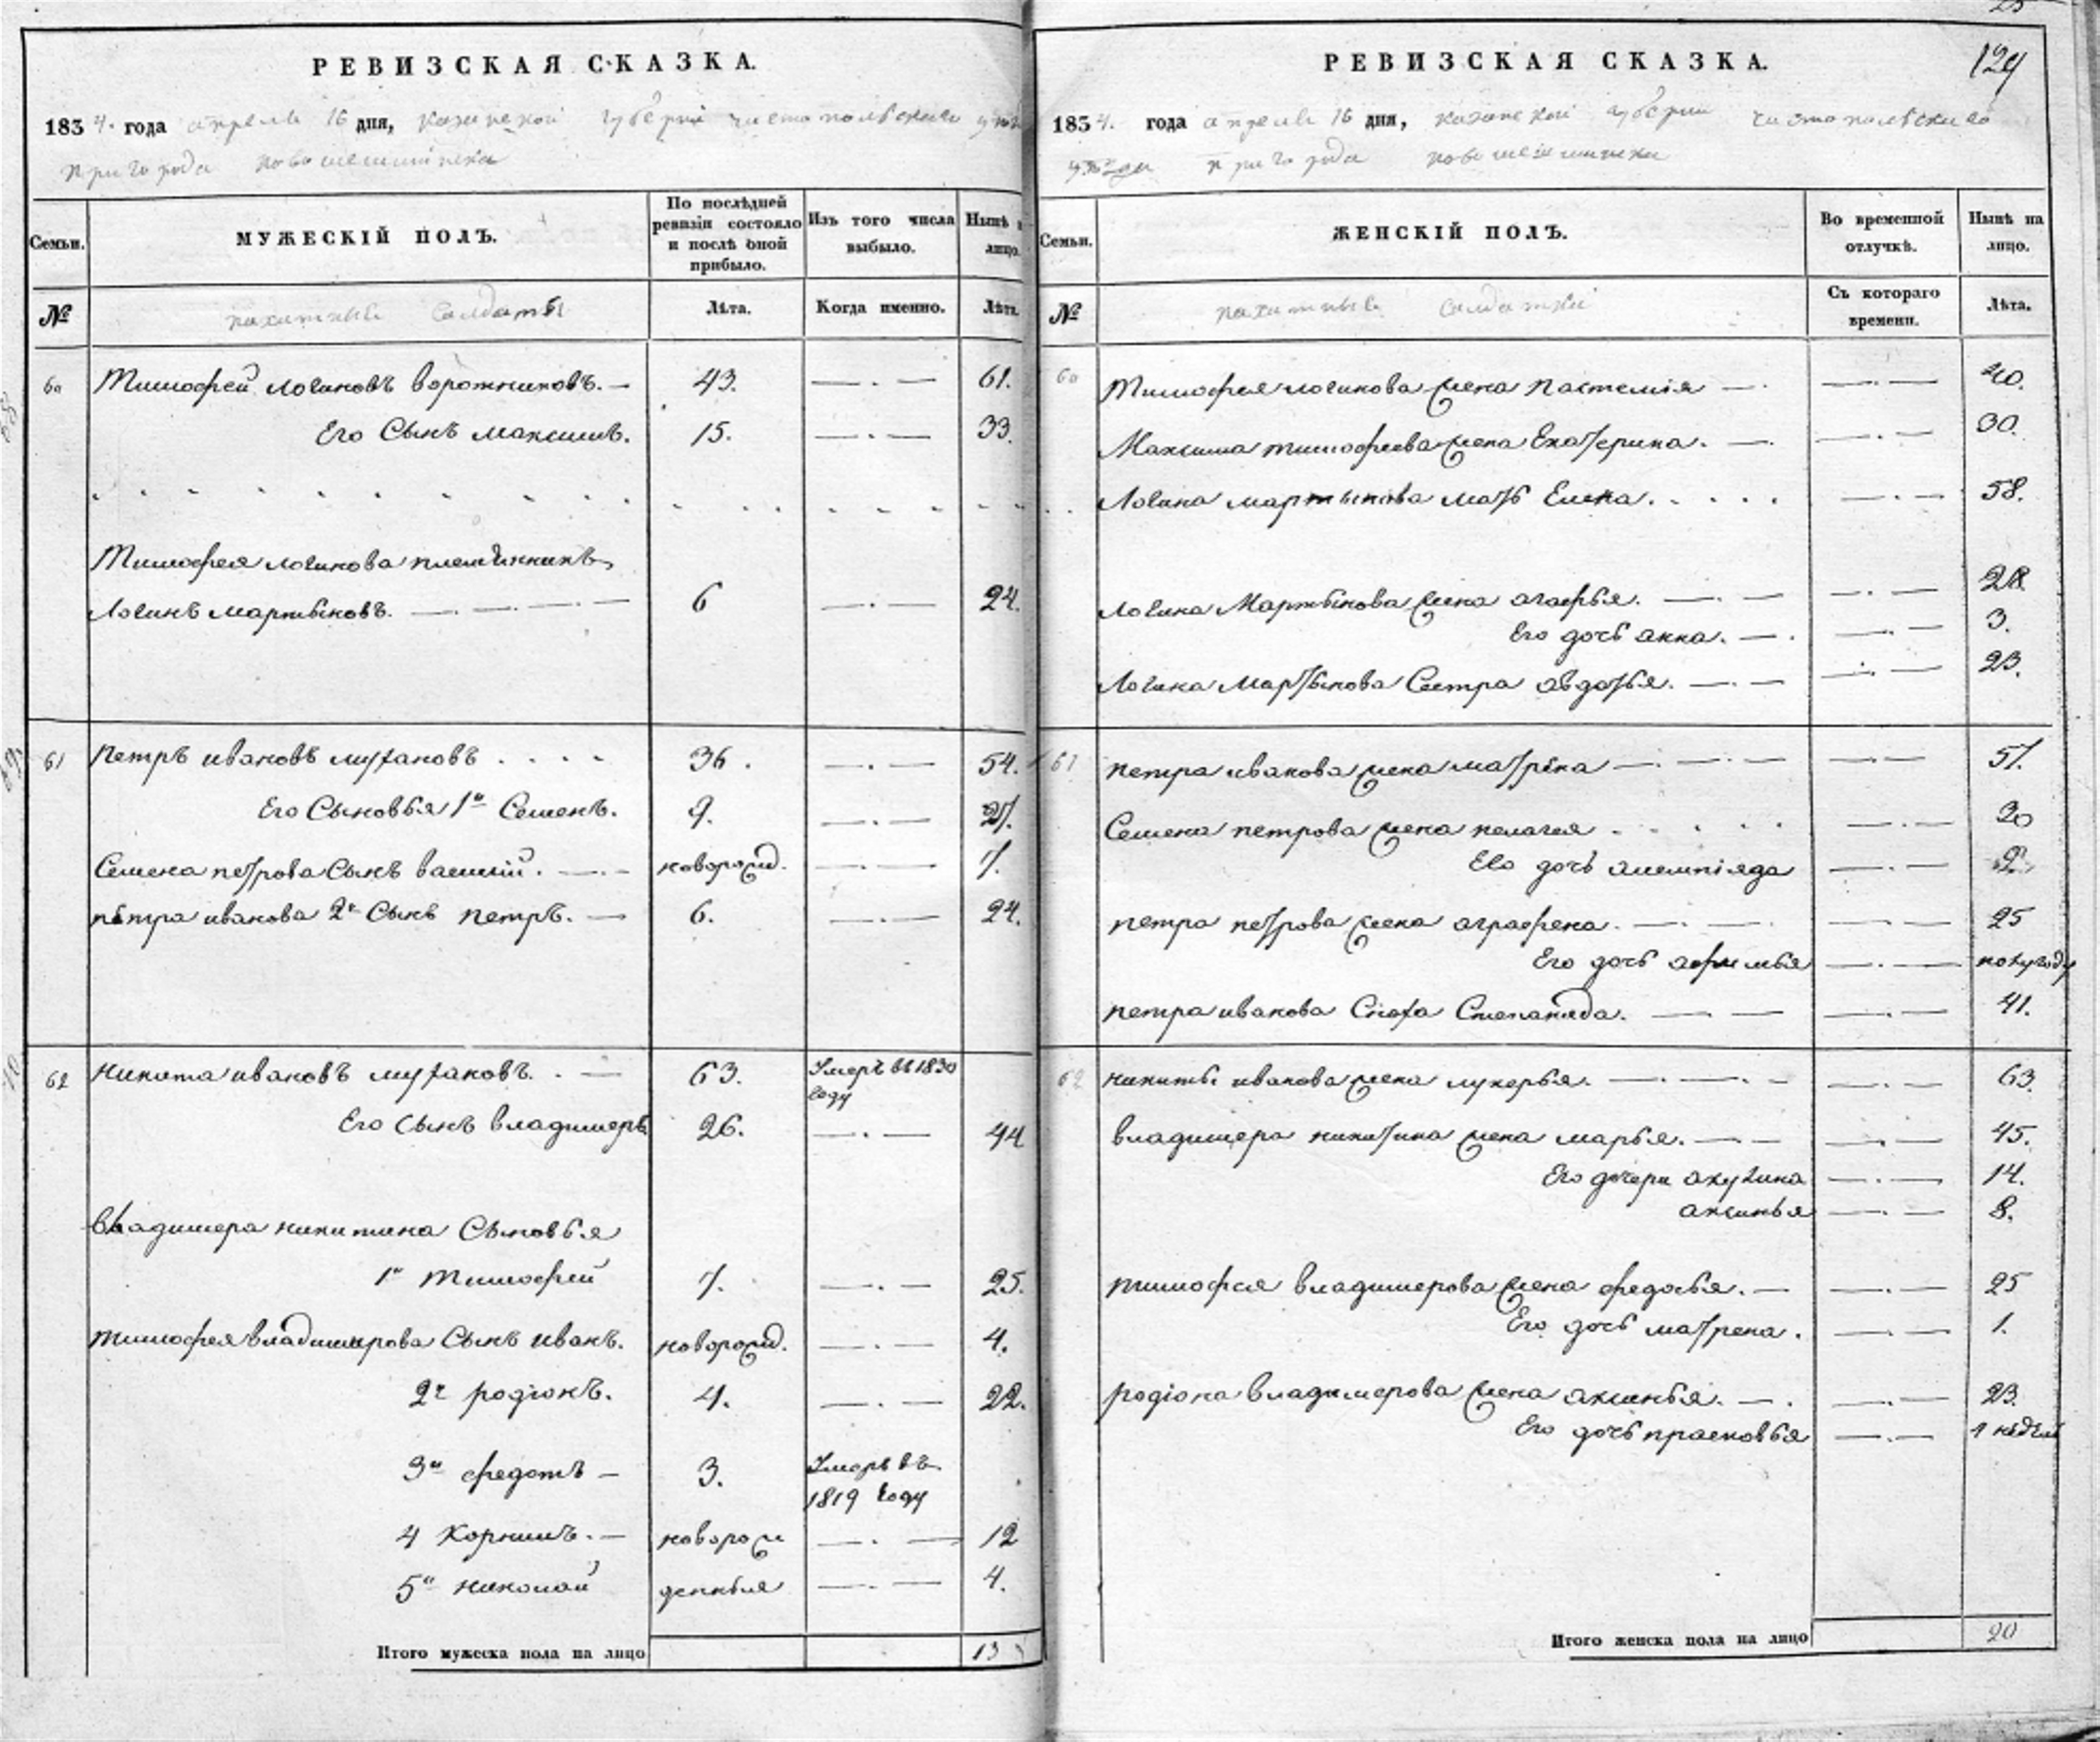 РЕВИЗСКАЯ СКАЗКА.
1834. года апреля 16 дня, казанской губерніи чистопольскаго
пригорода новошешминска
Семьи.
МУЖЕСКІЙ ПОЛЪ.
По послѣдней
ревизіи состояло
и послѣ оной
прибыло.
Изъ того числа
выбыло.
Нынѣ
лицо.
№
пахатные солдаты
Лѣта.
Когда именно.
Лѣта.
60 Тимофей логиновъ ворожниковъ. 43. 61.
Его Сынъ максимъ. 15. 33.
Тимофея логинова племянникъ
Логинъ мартыновъ. 6 24.
61 петръ ивановъ 36. 54.
Его Сыновья 1й Семенъ. 9. 27.
Семена петрова Сынъ василій. новорожд. 7.
петра иванова 2й Сынъ петръ. 6. 24.
62 никита ивановъ 63. Умеръ въ 1830
году
Его Сынъ владимеръ 26. 44
владимера никитина Сыновья
1й Тимофей 7. 25.
тимофея владимерова Сынъ иванъ. новорожд. 4.
2й родіонъ. 4. 22.
3й федотъ 3. Умеръ въ
1819 году
4 Корнилъ. новорож 12
5й николай 4.
Итого мужеска пола на лицо 13
25
129
РЕВИЗСКАЯ СКАЗКА.
1834. года апреля 16 дня, казанской губерніи чистопольскаго
уѣзда пригорода новошешминска
Семьи.
ЖЕНСКІЙ ПОЛЪ.
Во временной
отлучкѣ.
Нынѣ на
лицо.
№
пахатные солдатки
Съ котораго
времени.
Лѣта.
60 Тимофея логинова жена 40.
Максима тимофеева жена Екатерина. 30.
Логина мартынова мать Елена. 58.
Логина Мартынова жена агафья. 28
Его дочь анна. 3.
Логина Мартынова Сестра авдотья. 23.
61 петра иванова жена матрена 57.
Семена петрова жена пелагея 30
Его дочь 2.
петра петрова жена аграфена. 25
Его дочь афимья полугоду
петра иванова Сноха Степанида. 41.
62 никиты иванова жена лукерья. 63.
владимера никитина жена марья. 45.
Его дочери акулина 14.
аксинья 8.
тимофея владимерова жена федосья. 25
Его дочь матрена. 1.
родіона владимерова жена аксинья. 23.
Его дочь прасковья 1 недели
Итого женска пола на лицо 20